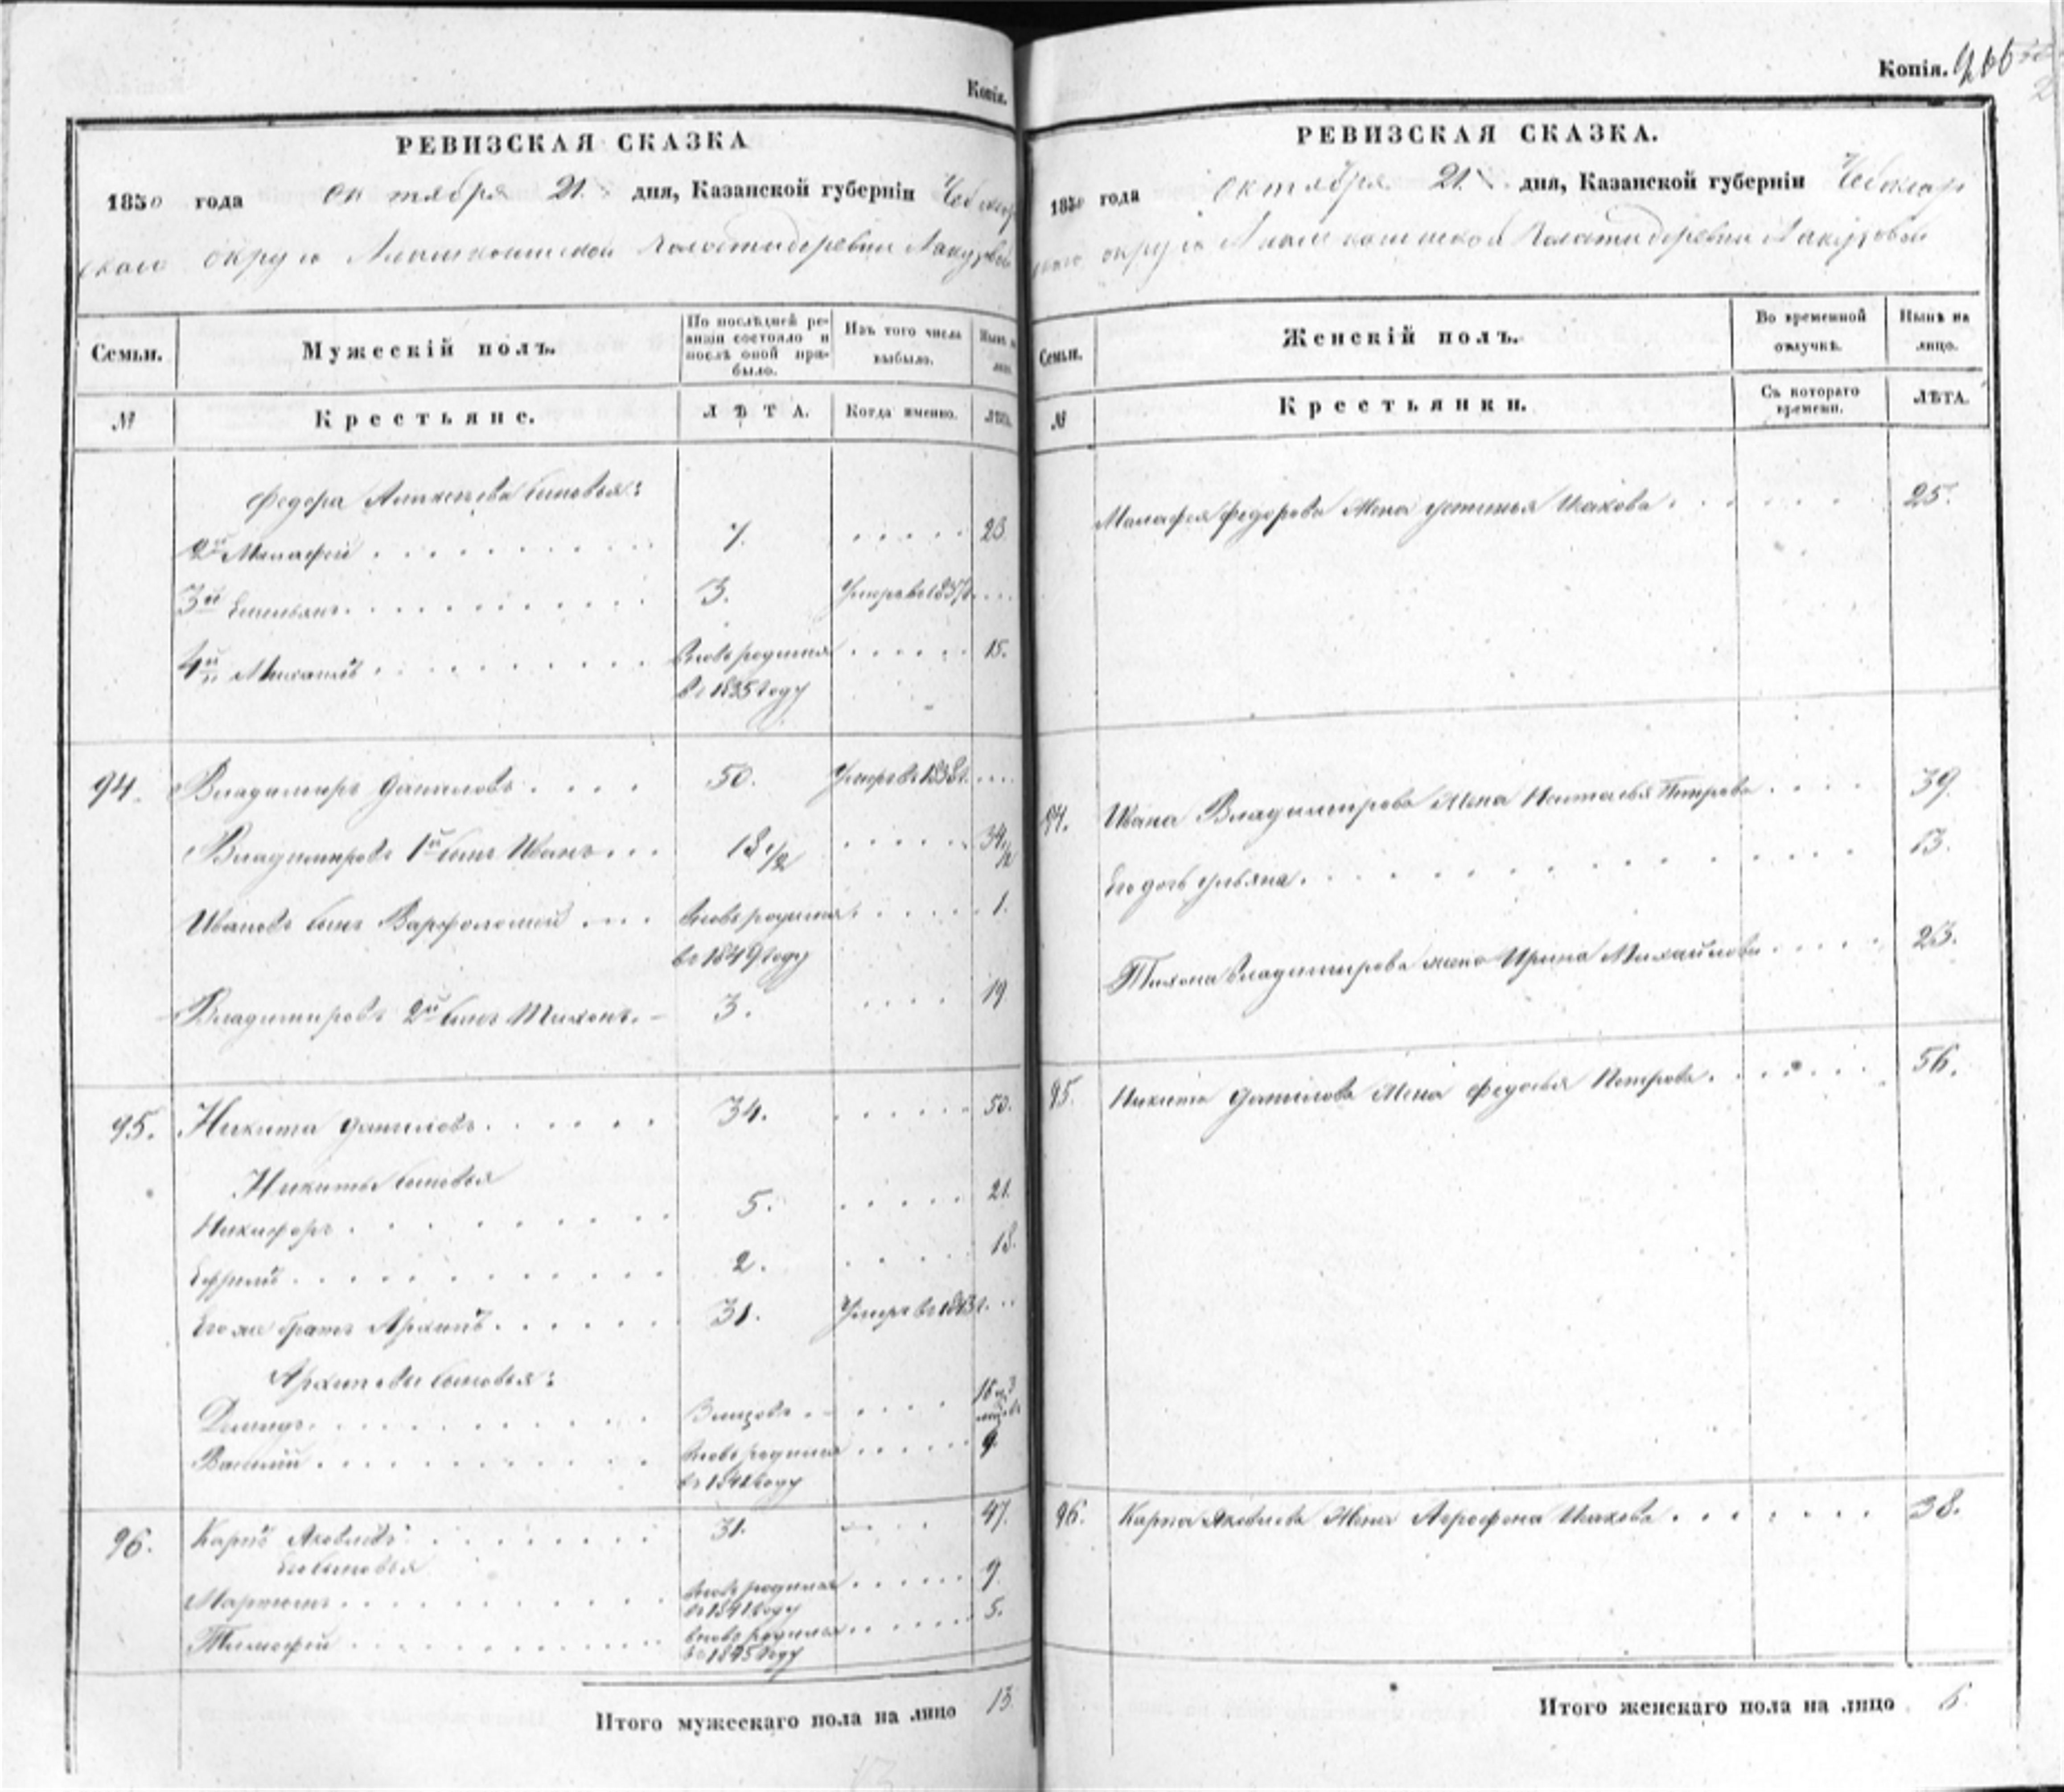 Копія.
РЕВИЗСКАЯ СКАЗКА
1850 года октября 21. дня, Казанской губерніи Чебоксар
скаго округа волости деревни
Семьи. Мужескій полъ. По послѣдней ревизіи состояло и послѣ оной прибыло. Изъ того числа выбыло. Нынѣ на лицо.
№ Крестьяне. ЛѢТА. Когда именно. ЛѢТА.
Федора Алексѣева сыновья:
2й Малафей 7. 23.
3й Емельянъ 3. Умеръ в 1837 г.
4й Михаилъ вновь родился 15.
в 1835 году
94. Владимиръ Даниловъ 50. Умеръ в 1838 г.
Владимировъ 1й сынъ Иванъ 18 1/2 34 1/2
Ивановъ сынъ Варфоломей вновь родился 1.
в 1849 году
Владимировъ 2й сынъ Тихонъ 3. 19
95. Никита Даниловъ 34. 50.
Никиты сыновья
Никифоръ 5. 21.
Ефремъ 2. 18.
Его же братъ Архипъ 31. Умеръ в 1843 г.
Архиповы сыновья:
Демидъ 16
Василій вновь родился 9
в 1841 году
96. Карпъ Яковлевъ 31. 47.
Его сыновья
Мартынъ вновь родился 9.
в 1841 году
Тимофей вновь родился 5.
в 1845 году
Итого мужескаго пола на лицо 13
Копія.
РЕВИЗСКАЯ СКАЗКА.
1850 года октября 21. дня, Казанской губерніи Чебоксар
скаго округа волости деревни
Семьи. Женскій полъ. Во временной отлучкѣ. Нынѣ на лицо.
№ Крестьянки. Съ котораго времени. ЛѢТА.
Малафея Федорова жена Устинья Исакова 25.
94. Ивана Владимирова жена Наталья Петрова 39.
Его дочь Ульяна 13.
Тихона Владимирова жена Ирина Михайлова 23.
95. Никиты Данилова жена Федосья Петрова 56.
96. Карпа Яковлева жена Исакова 38.
Итого женскаго пола на лицо 6.